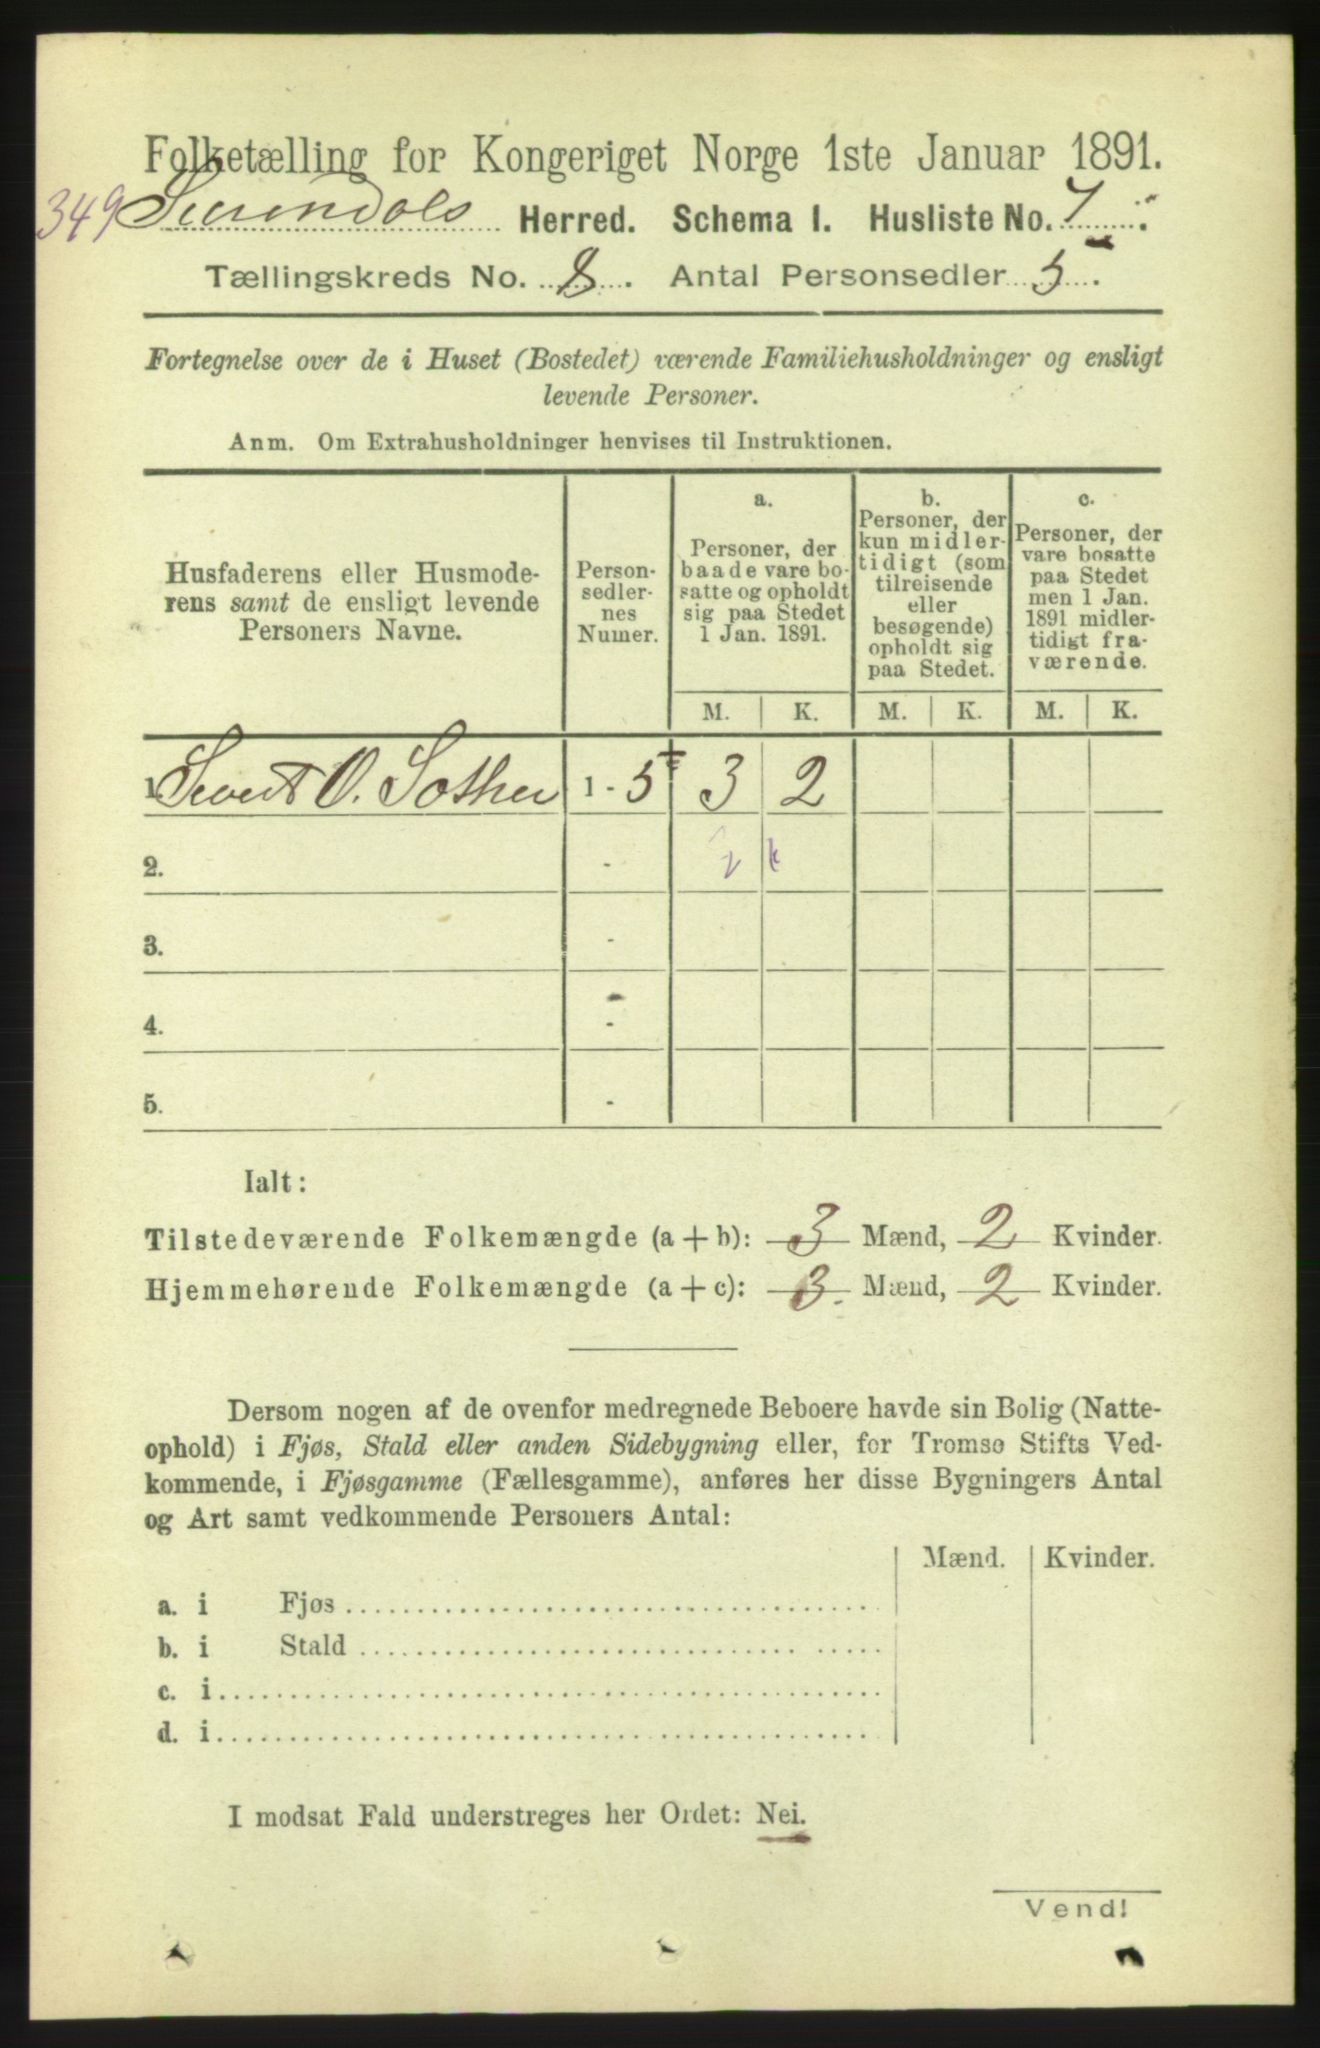 Folketælling for Kongeriget Norge 1ste Januar 1891.
349 Surendals Herred. Schema 1. Husliste No. 7.
Tællingskreds No. 8. Antal Personsedler 5.
Fortegnelse over de i Huset (Bostedet) værende Familiehusholdninger og ensligt
levende Personer.
Anm. Om Extrahusholdninger henvises til Instruktionen.
Husfaderens eller Husmode-
rens samt de ensligt levende
Personers Navne.
Person-
sedler-
nes
Numer.
a.
Personer, der
baade vare bo-
satte og opholdt
sig paa Stedet
1 Jan. 1891.
b.
Personer, der
kun midler-
tidigt (som
tilreisende
eller
besøgende)
opholdt sig
paa Stedet.
c.
Personer, der
vare bosatte
paa Stedet
men 1 Jan.
1891 midler-
tidigt fra-
værende.
M. K. M. K. M. K.
1. Sivert O. Sæther 1 - 5 3 2
2. -
3. -
4. -
5. -
Ialt:
Tilstedeværende Folkemængde (a + b): 3 Mænd, 2 Kvinder.
Hjemmehørende Folkemængde (a + c): 3. Mænd, 2 Kvinder.
Dersom nogen af de ovenfor medregnede Beboere havde sin Bolig (Natte-
ophold) i Fjøs, Stald eller anden Sidebygning eller, for Tromsø Stifts Ved-
kommende, i Fjøsgamme (Fællesgamme), anføres her disse Bygningers Antal
og Art samt vedkommende Personers Antal:
Mænd. Kvinder.
a. i Fjøs
b. i Stald
c. i
d. i
I modsat Fald understreges her Ordet: Nei.
Vend!